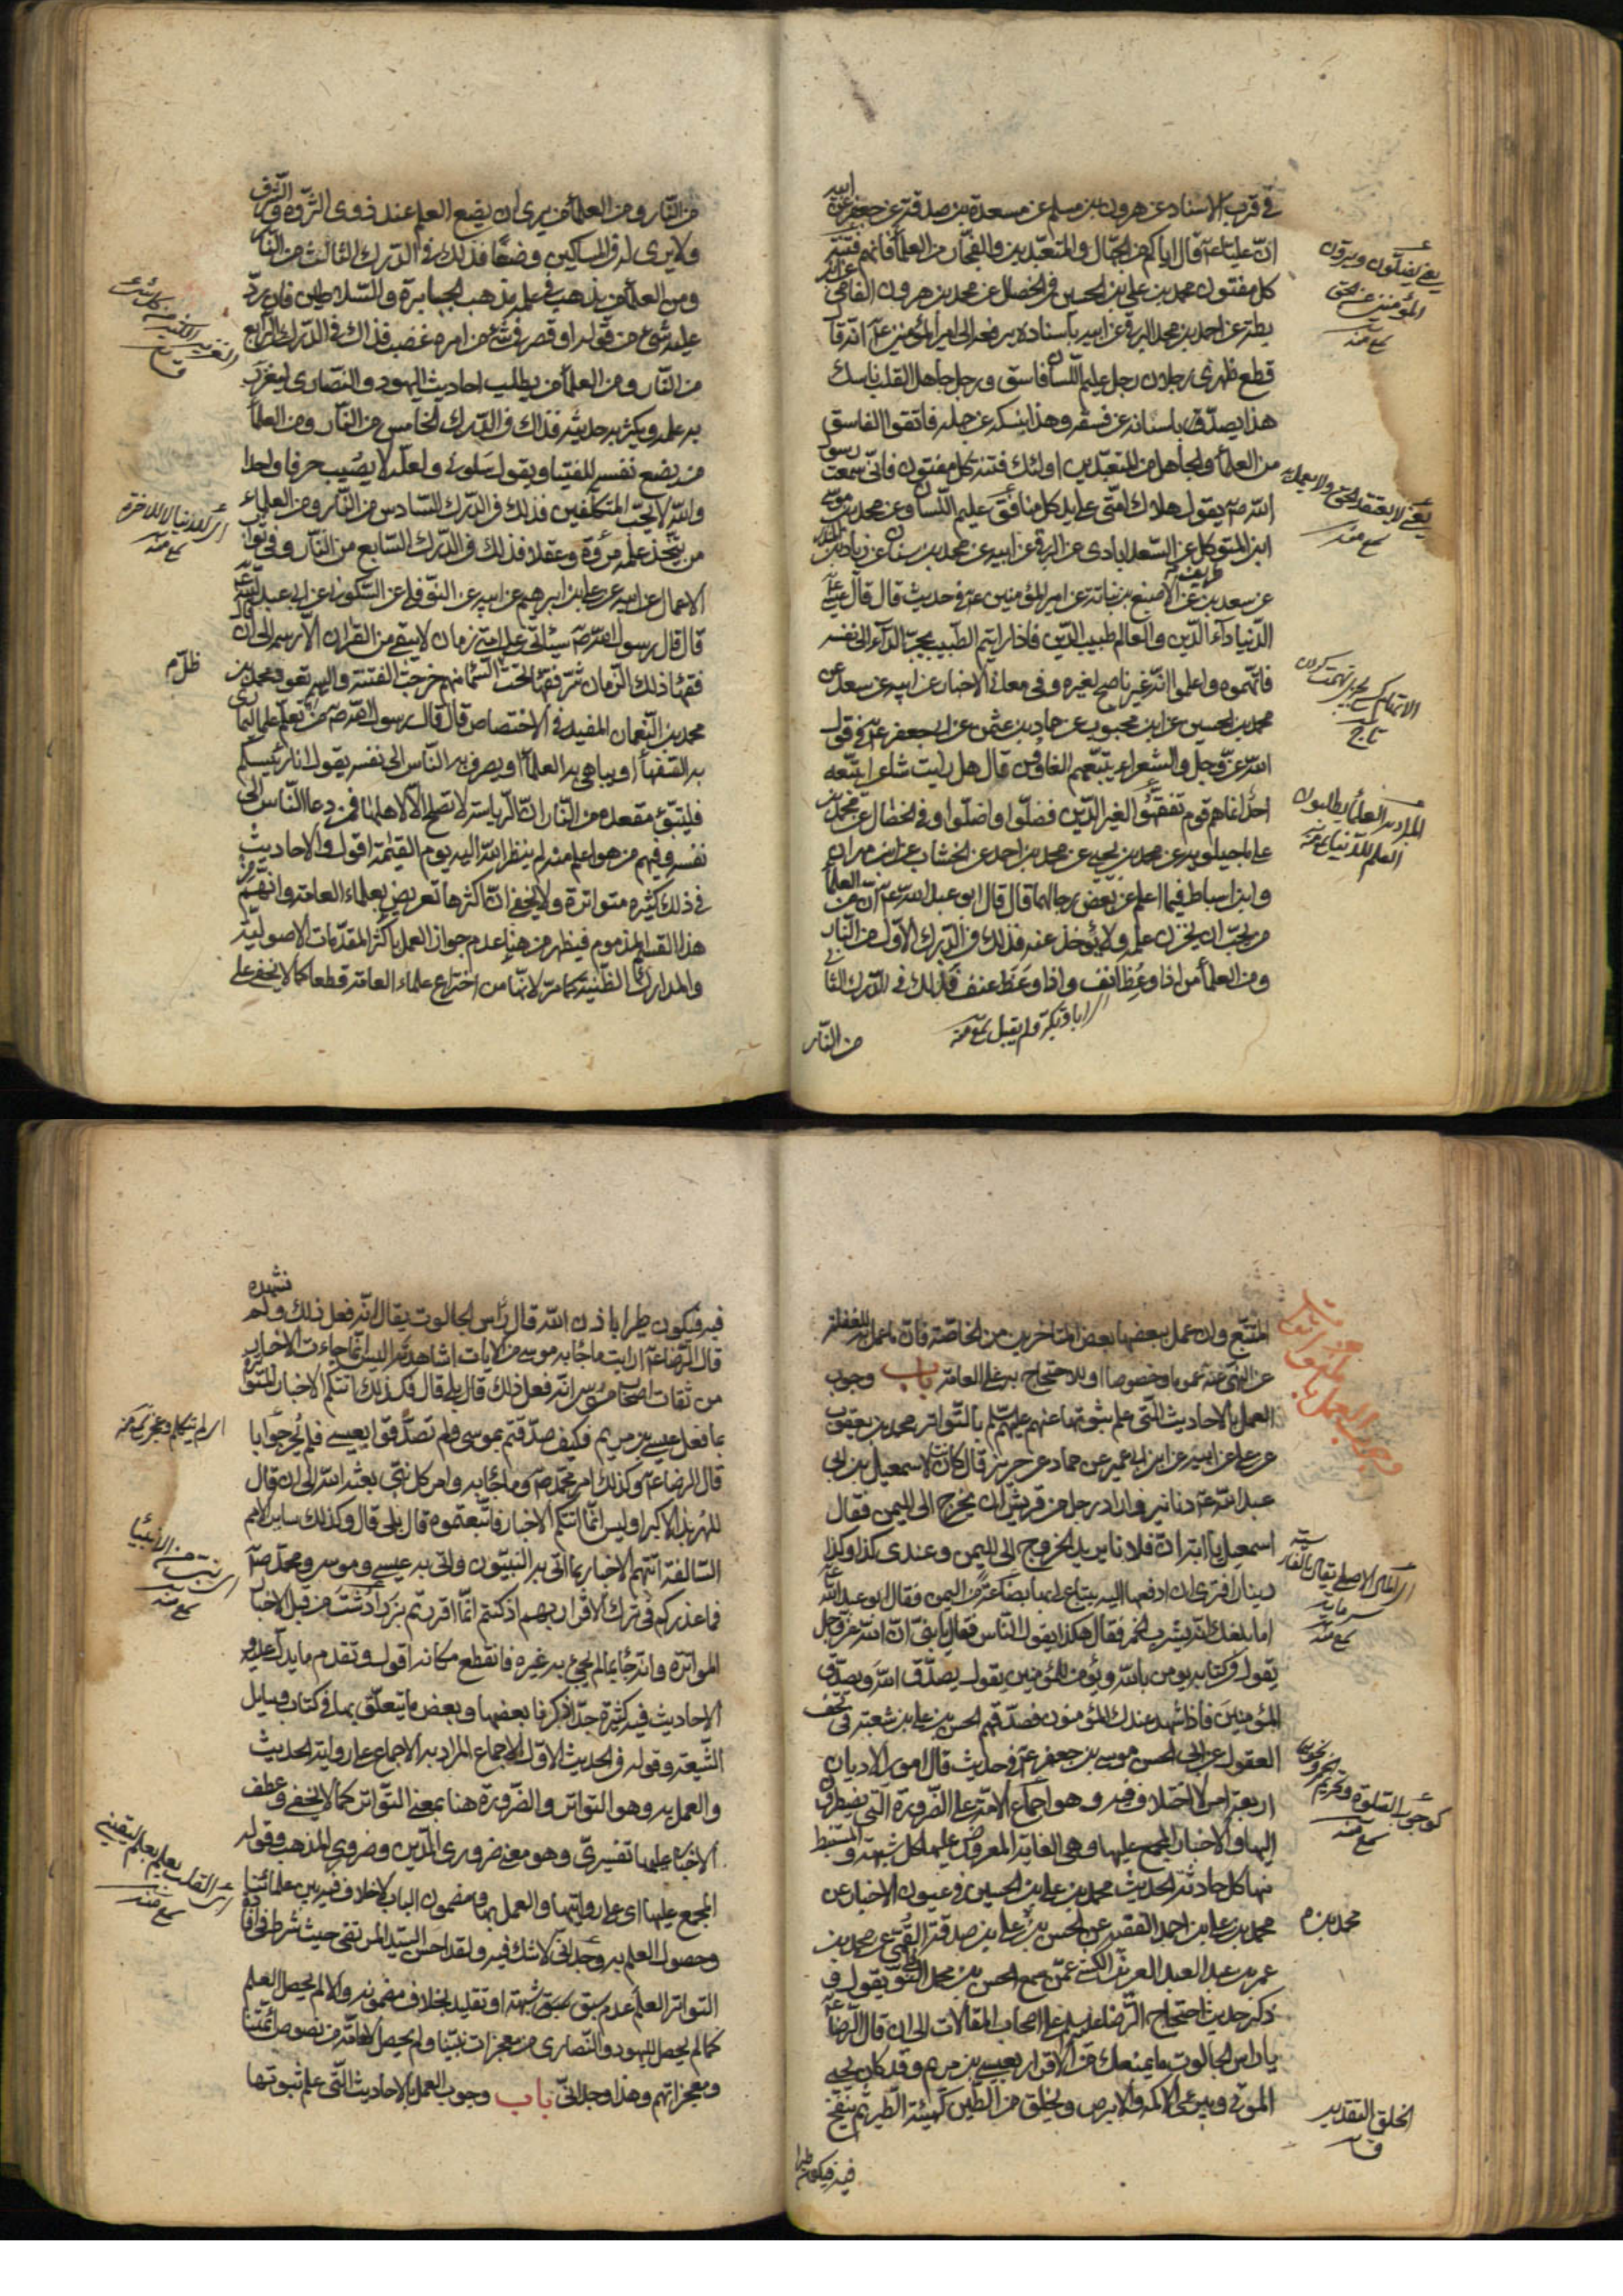 في قرب الاسناد عن هرون بن مسلم عن مسعدة بن صدقة عن جعفر عن ابيه
انّ عليا عم قال اياكم من الجهال والمتعبدين والفجار من العلماء فانهم فتنة
كل مفتون محمد بن علي بن الحسين في الخصال عن محمد بن هرون الفامي عن ابن
بطة عن احمد بن محمد البرقي عن ابيه باسناده يرفعه الى امير المؤمنين عم انه قا
قطع ظهرى رجلان رجل عليم اللسان فاسق ورجل جاهل القلب ناسك
هذا يصدّق بلسانه عن فسقه وهذا بنسكه عن جهله فاتقوا الفاسق
من العلماء والجاهل من المتعبدين اولئك فتنة كل مفتون فانى سمعت رسول
الله صم يقول هلاك امتى على يد كل منافق عليم اللسان وعن محمد بن موسى
ابن المتوكل عن السعدابادى عن البرقي عن ابيه عن محمد بن سنان عن زياد بن المنذر
عن سعد بن طريف عن الاصبغ بن نباتة عن امير المؤمنين عم في حديث قال قال عيسى عم
الدنيا داء الدين والعالم طبيب الدين فاذا رايتم الطبيب يجر الداء الى نفسه
فاتهموه واعلموا انه غير ناصح لغيره وفي معاني الاخبار عن ابيه عن سعد عن
محمد بن الحسين عن ابن محبوب عن حماد بن عثمن عن ابي جعفر عم في قول
الله عز وجل والشعراء يتبعهم الغاوون قال هل رايت شاعرا يتبعه
احد انما هم قوم تفقهوا لغير الدين فضلوا واضلوا وفي الخصال عن محمد بن
علي ماجيلويه عن محمد بن يحيى عن محمد بن احمد عن الخشاب عن ابن مهران
وابن اسباط فيما اعلم عن بعض رجالهما قال قال ابو عبد الله عم ان من العلماء
من يحب ان يخزن علمه ولا يؤخذ عنه فذلك في الدرك الاول من النار
ومن العلماء من اذا وعظ انف واذا وعظ عنف فذلك في الدرك الثانى
من النار
من النار ومن العلماء من يرى ان يضع العلم عند ذوى الثروة والشرف
ولا يرى له في المساكين وضعا فذلك في الدرك الثالث من النار
ومن العلماء من يذهب في علمه مذهب الجبابرة والسلاطين فان رد
عليه شئ من قوله او قصر في شئ من امره غضب فذاك في الدرك الرابع
من النار ومن العلماء من يطلب احاديث اليهود والنصارى ليغزر
به علمه ويكثر به حديثه فذاك في الدرك الخامس من النار ومن العلماء
من يضع نفسه للفتيا ويقول سلونى ولعله لا يصيب حرفا واحدا
والله لا يحب المتكلفين فذلك في الدرك السادس من النار ومن العلماء
من يتخذ علمه مروة وعقلا فذلك في الدرك السابع من النار وفي ثواب
الاعمال عن ابيه عن علي بن ابرهيم عن ابيه عن النوفلي عن السكوني عن ابي عبد الله عم
قال قال رسول الله صم سيأتى على امتى زمان لا يبقى من القران الا رسمه الى ان قال
فقهاء ذلك الزمان شر فقهاء تحت السماء منهم خرجت الفتنة واليهم تعود محمد بن
محمد بن النعمان المفيد في الاختصاص قال قال رسول الله صم من تعلم علما ليمارى
به السفهاء او يباهي به العلماء او يصرف به الناس الى نفسه يقول انا رئيسكم
فليتبوء مقعده من النار ان الرياسة لا تصلح الا لاهلها فمن دعا الناس الى
نفسه وفيهم من هو اعلم منه لم ينظر الله اليه يوم القيمة اقول والاحاديث
في ذلك كثيرة متواترة ولا يخفى ان اكثرها تعريض بعلماء العامة وانهم من
هذا القسم المذموم فيظهر من هنا عدم جواز العمل باكثر المقدمات الاصولية
والمدارك الظنية كما مر لانها من اختراع علماء العامة قطعا كما لا يخفى على
المتتبع وان عمل ببعضها بعض المتاخرين من الخاصة فان ما عمل به للغفلة
عن النهى عنه عموما وخصوصا او للاحتجاج به على العامة باب وجوب
العمل بالاحاديث التى علم ثبوتها عنهم عليهم السلم بالتواتر محمد بن يعقوب
عن علي عن ابيه عن ابن ابي عمير عن حماد عن حريز قال كانت لاسمعيل بن ابي
عبد الله عم دنانير واراد رجل من قريش ان يخرج الى اليمن فقال
اسمعيل يا ابت ان فلانا يريد الخروج الى اليمن وعندى كذا وكذا
دينار افترى ان ادفعها اليه يبتاع لى بها بضاعة من اليمن فقال ابو عبد الله عم
اما بلغك انه يشرب الخمر فقال هكذا يقول الناس فقال يا بنى ان الله عز وجل
يقول في كتابه يؤمن بالله ويؤمن للمؤمنين يقول يصدق الله ويصدق
المؤمنين فاذا شهد عندك المؤمنون فصدقهم الحسن بن علي بن شعبة في تحف
العقول عن ابي الحسن موسى بن جعفر عم في حديث قال امور الاديان
اربعة امر لا اختلاف فيه وهو اجماع الامة على الضرورة التى يضطرون
اليها والاخبار المجمع عليها وهى الغاية المعروض عليها كل شبهة والمستنبط
منها كل حادثة الحديث محمد بن علي بن الحسين في عيون الاخبار عن
محمد بن علي بن احمد الفقيه عن الحسن بن علي بن صدقة القمى عن محمد بن
عمر بن عبد العزيز الكشى عمن سمع الحسن بن محمد النوفلي يقول و
ذكر حديث احتجاج الرضا عليه السلم على اصحاب المقالات الى ان قال الرضا عم
يا راس الجالوت ما يمنعك من الاقرار بعيسى بن مريم وقد كان يحيى
الموتى ويبرئ الاكمه والابرص ويخلق من الطين كهيئة الطير ثم ينفخ
فيه فيكون طيرا
فيه فيكون طيرا باذن الله قال راس الجالوت يقال انه فعل ذلك ولم نشهده
قال الرضا عم ارايت ما جاء به موسى من الايات اشاهدته اليس انما جاءت الاخبار به
من ثقات اصحاب موسى انه فعل ذلك قال بلى قال فكذلك اتتكم الاخبار المتواترة
بما فعل عيسى بن مريم فكيف صدقتم بموسى ولم تصدقوا بعيسى فلم يحر جوابا
قال الرضا عم وكذلك امر محمد صم وما جاء به وامر كل نبى بعثه الله الى ان قال
للهربذ الاكبر اوليس انما اتتكم الاخبار فاتبعتموه قال بلى قال وكذلك ساير الامم
السالفة اتتهم الاخبار بما اتى به النبيون واتى به عيسى وموسى ومحمد صم
فما عذركم في ترك الاقرار بهم اذ كنتم انما اقررتم بزرادشت من قبل الاخبار
المواترة وانه جاء بما لم يجئ به غيره فانقطع مكانه اقول وتقدم ما يدل عليه و
الاحاديث فيه كثيرة جدا ذكرنا بعضها وبعض ما يتعلق بها في كتاب وسايل
الشيعة وقوله في الحديث الاول الاجماع المراد به الاجماع على رواية الحديث
والعمل به وهو التواتر والضرورة هنا بمعنى التواتر كما لا يخفى وعطف
الاخبار عليها تفسيرى وهو معنى ضرورى الدين وضرورى المذهب وقوله
المجمع عليها اى على روايتها والعمل بها ومضمون الباب لا خلاف فيه بين علمائنا
وحصول العلم به وجدانى لا شك فيه ولقد احسن السيد المرتضى حيث شرط في افادة
التواتر العلم عدم سبق شبهة او تقليد بخلاف مضمونه والا لم يحصل العلم
كما لم يحصل لليهود والنصارى من معجزات نبينا ولم يحصل للعامة من نصوص ائمتنا
ومعجزاتهم وهذا وجدانى باب وجوب العمل بالاحاديث التى علم ثبوتها